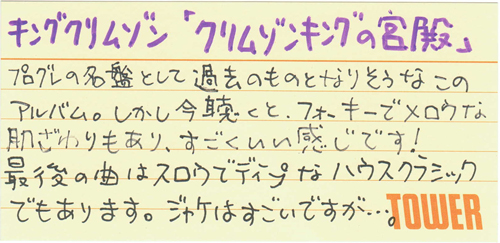 キングクリムゾン「クリムゾンキングの宮殿」
プログレの名盤として過去のものとなりそうなこの
アルバム。しかし今聴くと、フォーキーでメロウな
肌ざわりもあり、すごくいい感じです!
最後の曲はスロウでディープなハウスクラシック
でもあります。ジャケはすごいですが…。
TOWER